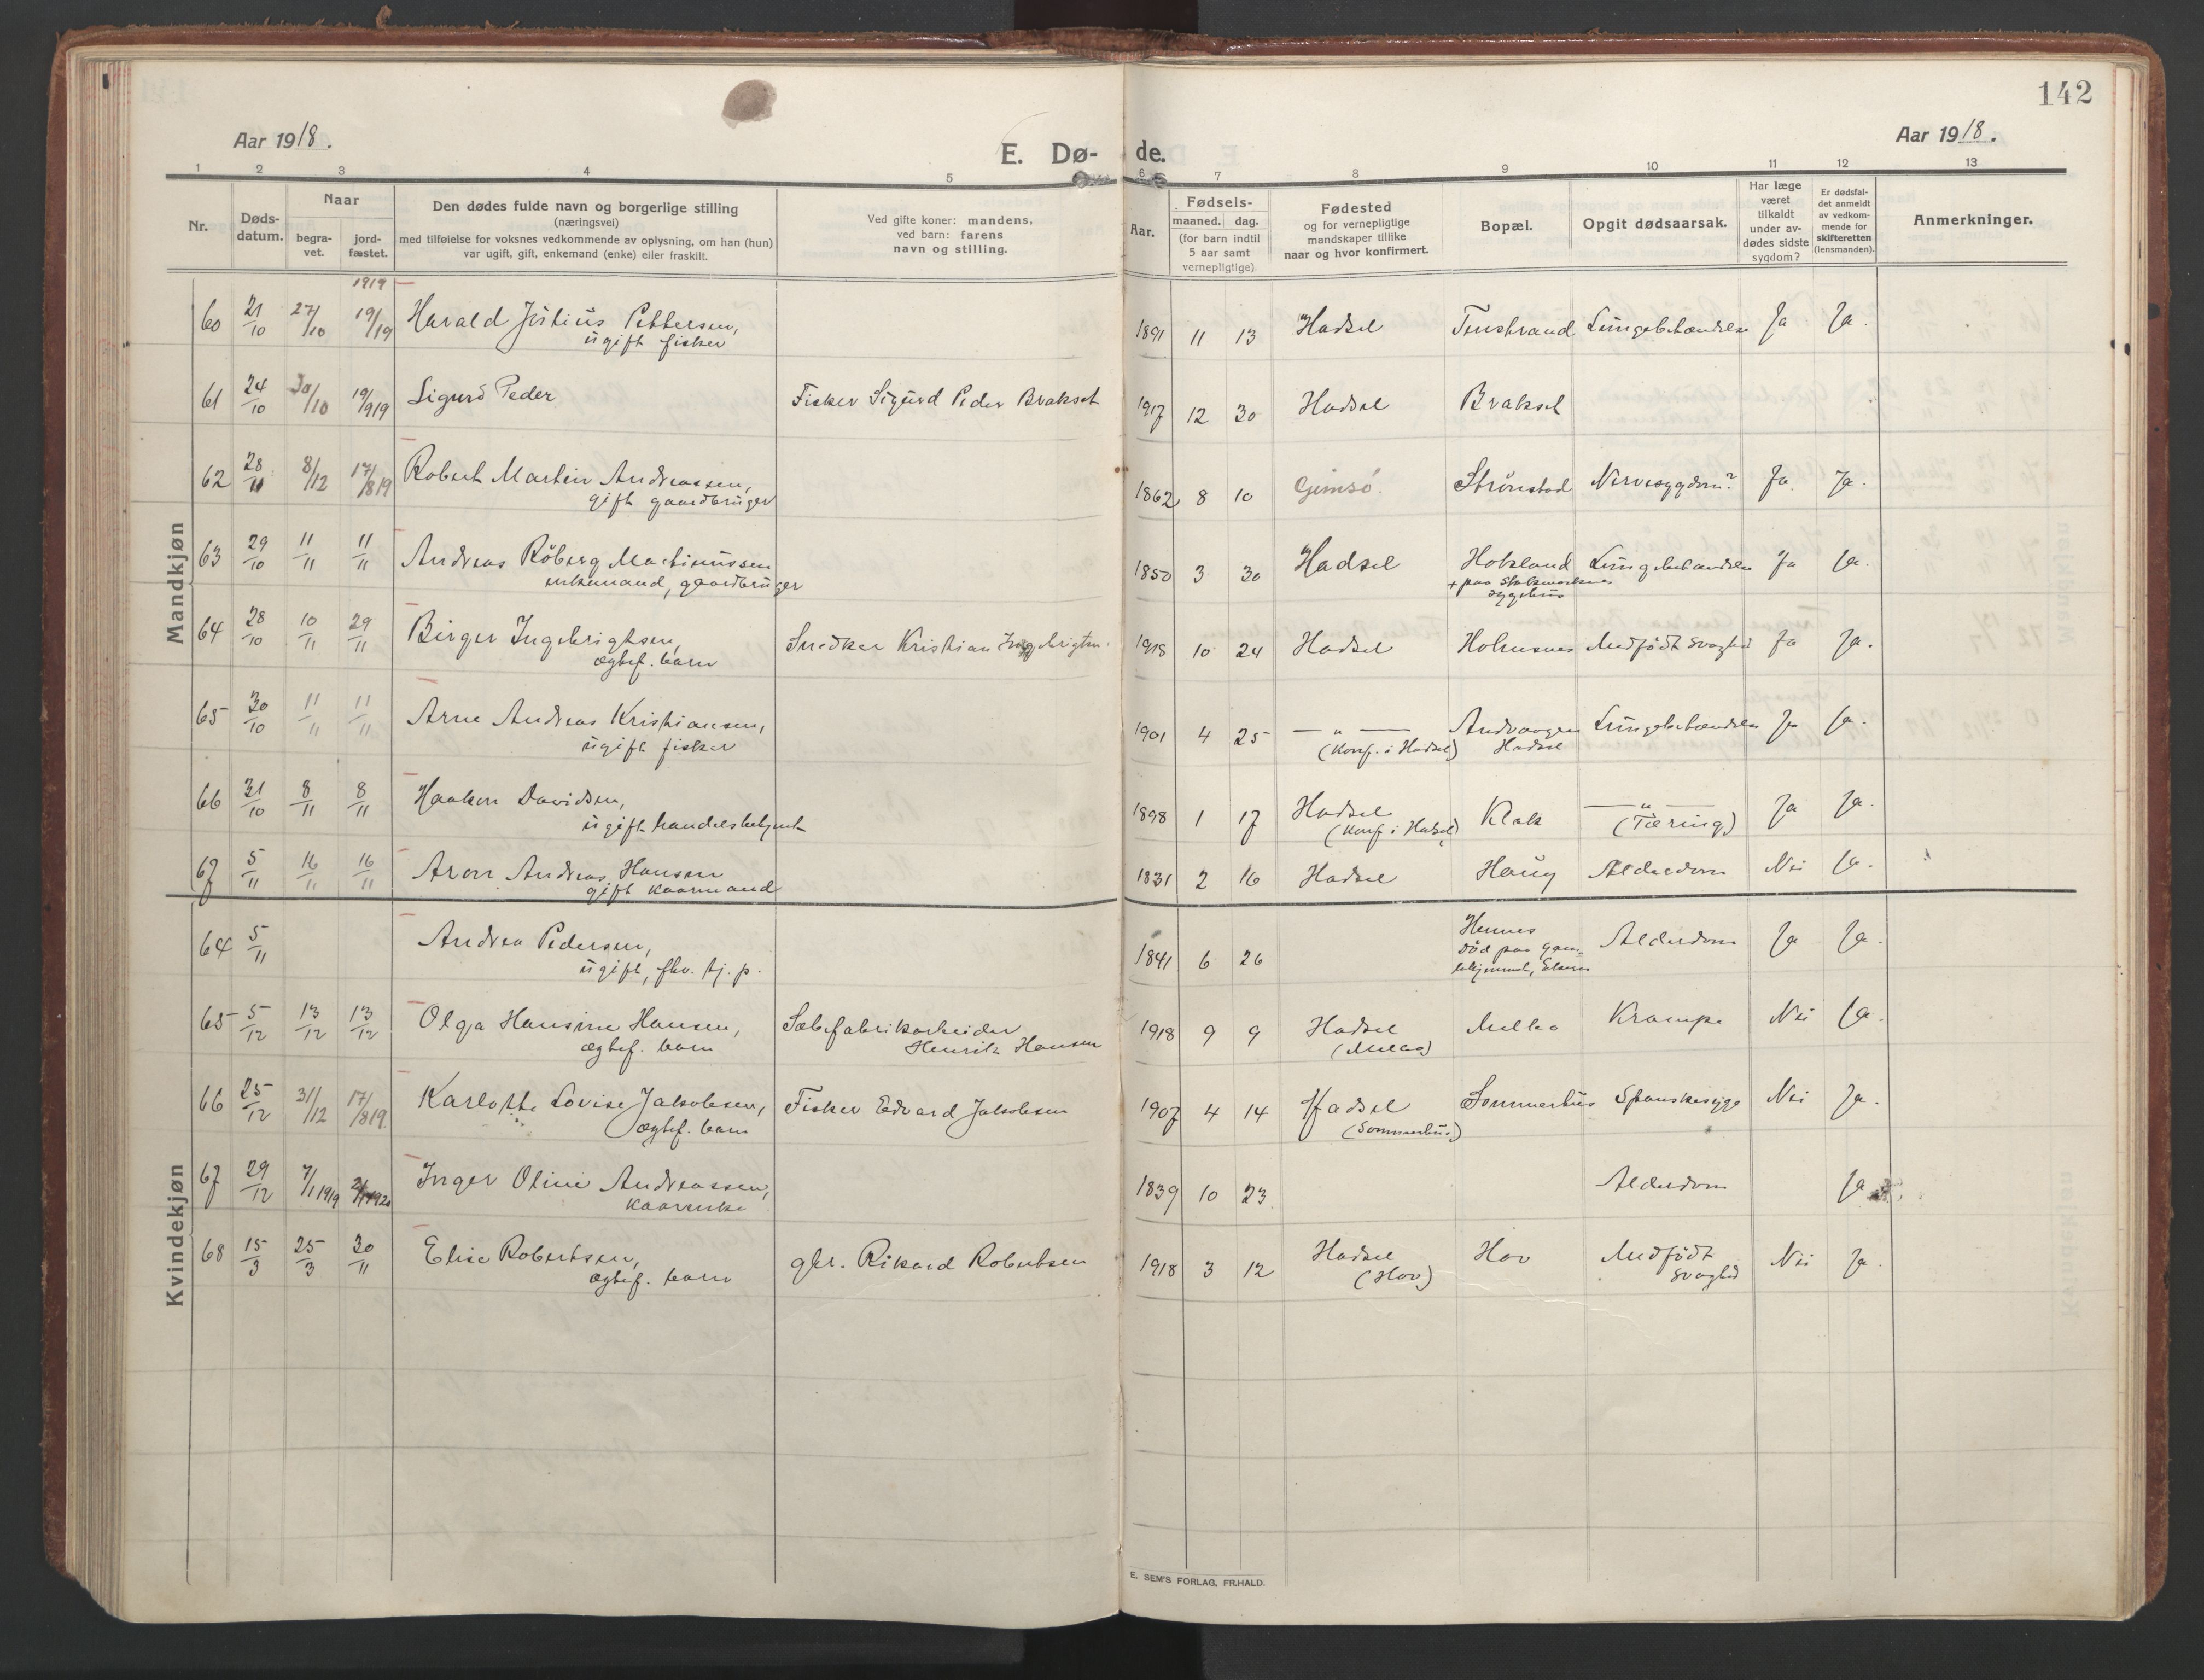 142
Aar 1918.
E. Dø- de.
Aar 1918.
1 2 3 4 5 6 7 8 9 10 11 12 13
Nr.
Døds-
datum.
Naar
begra-
vet.
jord-
fæstet.
Den dødes fulde navn og borgerlige stilling
(næringsvei)
med tilføielse for voksnes vedkommende av oplysning, om han (hun)
var ugift, gift, enkemand (enke) eller fraskilt.
Ved gifte koner: mandens,
ved barn: farens
navn og stilling.
Aar.
Fødsels-
maaned. dag.
(for barn indtil
5 aar samt
vernepligtige)
Fødested
og for vernepligtige
mandskaper tillike
naar og hvor konfirmert.
Bopæl.
Opgit dødsaarsak.
Har læge
været
tilkaldt
under av-
dødes sidste
sygdom?
Er dødsfal-
det anmeldt
av vedkom-
mende for
skifteretten
(lensmanden).
Anmerkninger.
Mandkjøn
1919
60 21/10 27/10 19/19 Harald Justius Pettersen, 1891 11 13 Hadsel Tenstrand Lungebetændelse Ja Ja.
ugift fisker
61 24/10 30/10 19/919 Sigurd Peder Fisker Sigurd Peder Brakset 1917 12 30 Hadsel Brakset
62 28/11 8/12 17/819 Robert Martin Andreassen, 1862 8 10 Gimsø. Strønstad Nervesygdom? Ja. Ja.
gift gaardbruger
63 29/10 11/11 11/11 Andreas Røberg Martinussen 1850 3 30 Hadsel Hokland Lungebetændelse Ja Ja.
enkemand, gaardbruger + paa Stokmarknes
sygehus
64 28/10 10/11 29/11 Birger Ingebrigtsen, Snedker Kristian Ingebrigtsen. 1918 10 24 Hadsel Holmsnes Medfødt svaghed Ja Ja.
ægtef. barn
65 30/10 11/11 11/11 Arne Andreas Kristiansen, 1901 4 25 — " — Andvaagen Lungebetændelse Ja Ja.
ugift fisker (Konf. i Hadsel) Hadsel
66 31/10 8/11 8/11 Haakon Davidsen, 1898 1 17 Hadsel Klak — " — Ja Ja.
ugift handelsbetjent (Konf. i Hadsel) (Tæring)
67 5/11 16/11 16/11 Aron Andreas Hansen 1831 2 16 Hadsel Haug Alderdom Nei Ja.
gift kaarmand
Kvindekjøn
64 5/11 Andrea Pedersen, 1841 6 26 Hennes Alderdom Ja Ja.
ugift, fhv. tj. p. Død paa Gam-
lehjemmet,
65 5/12 13/12 13/12 Olga Hansine Hansen, Sæbefabrikarbeider 1918 9 9 Hadsel Melbo Krampe Nei Ja.
ægtef. barn Henrik Hansen
66 25/12 31/12 17/819. Karlotte Lovise Jakobsen, Fisker Edvard Jakobsen 1907 4 14 Hadsel Sommerhus Spanskesyge Nei Ja.
ægtef. barn (Sommerhus)
67 29/12 7/1 1919 Inger Oline Andreassen, 1839 10 23 Alderdom Ja
kaarenke
68 15/3 25/3 30/11 Elise Robertsen, gbr. Rikard Robertsen 1918 3 12 Hadsel Hov Medfødt Nei Ja.
ægtef. barn (Hov) svaghed
E. SEM'S FORLAG, FR.HALD.